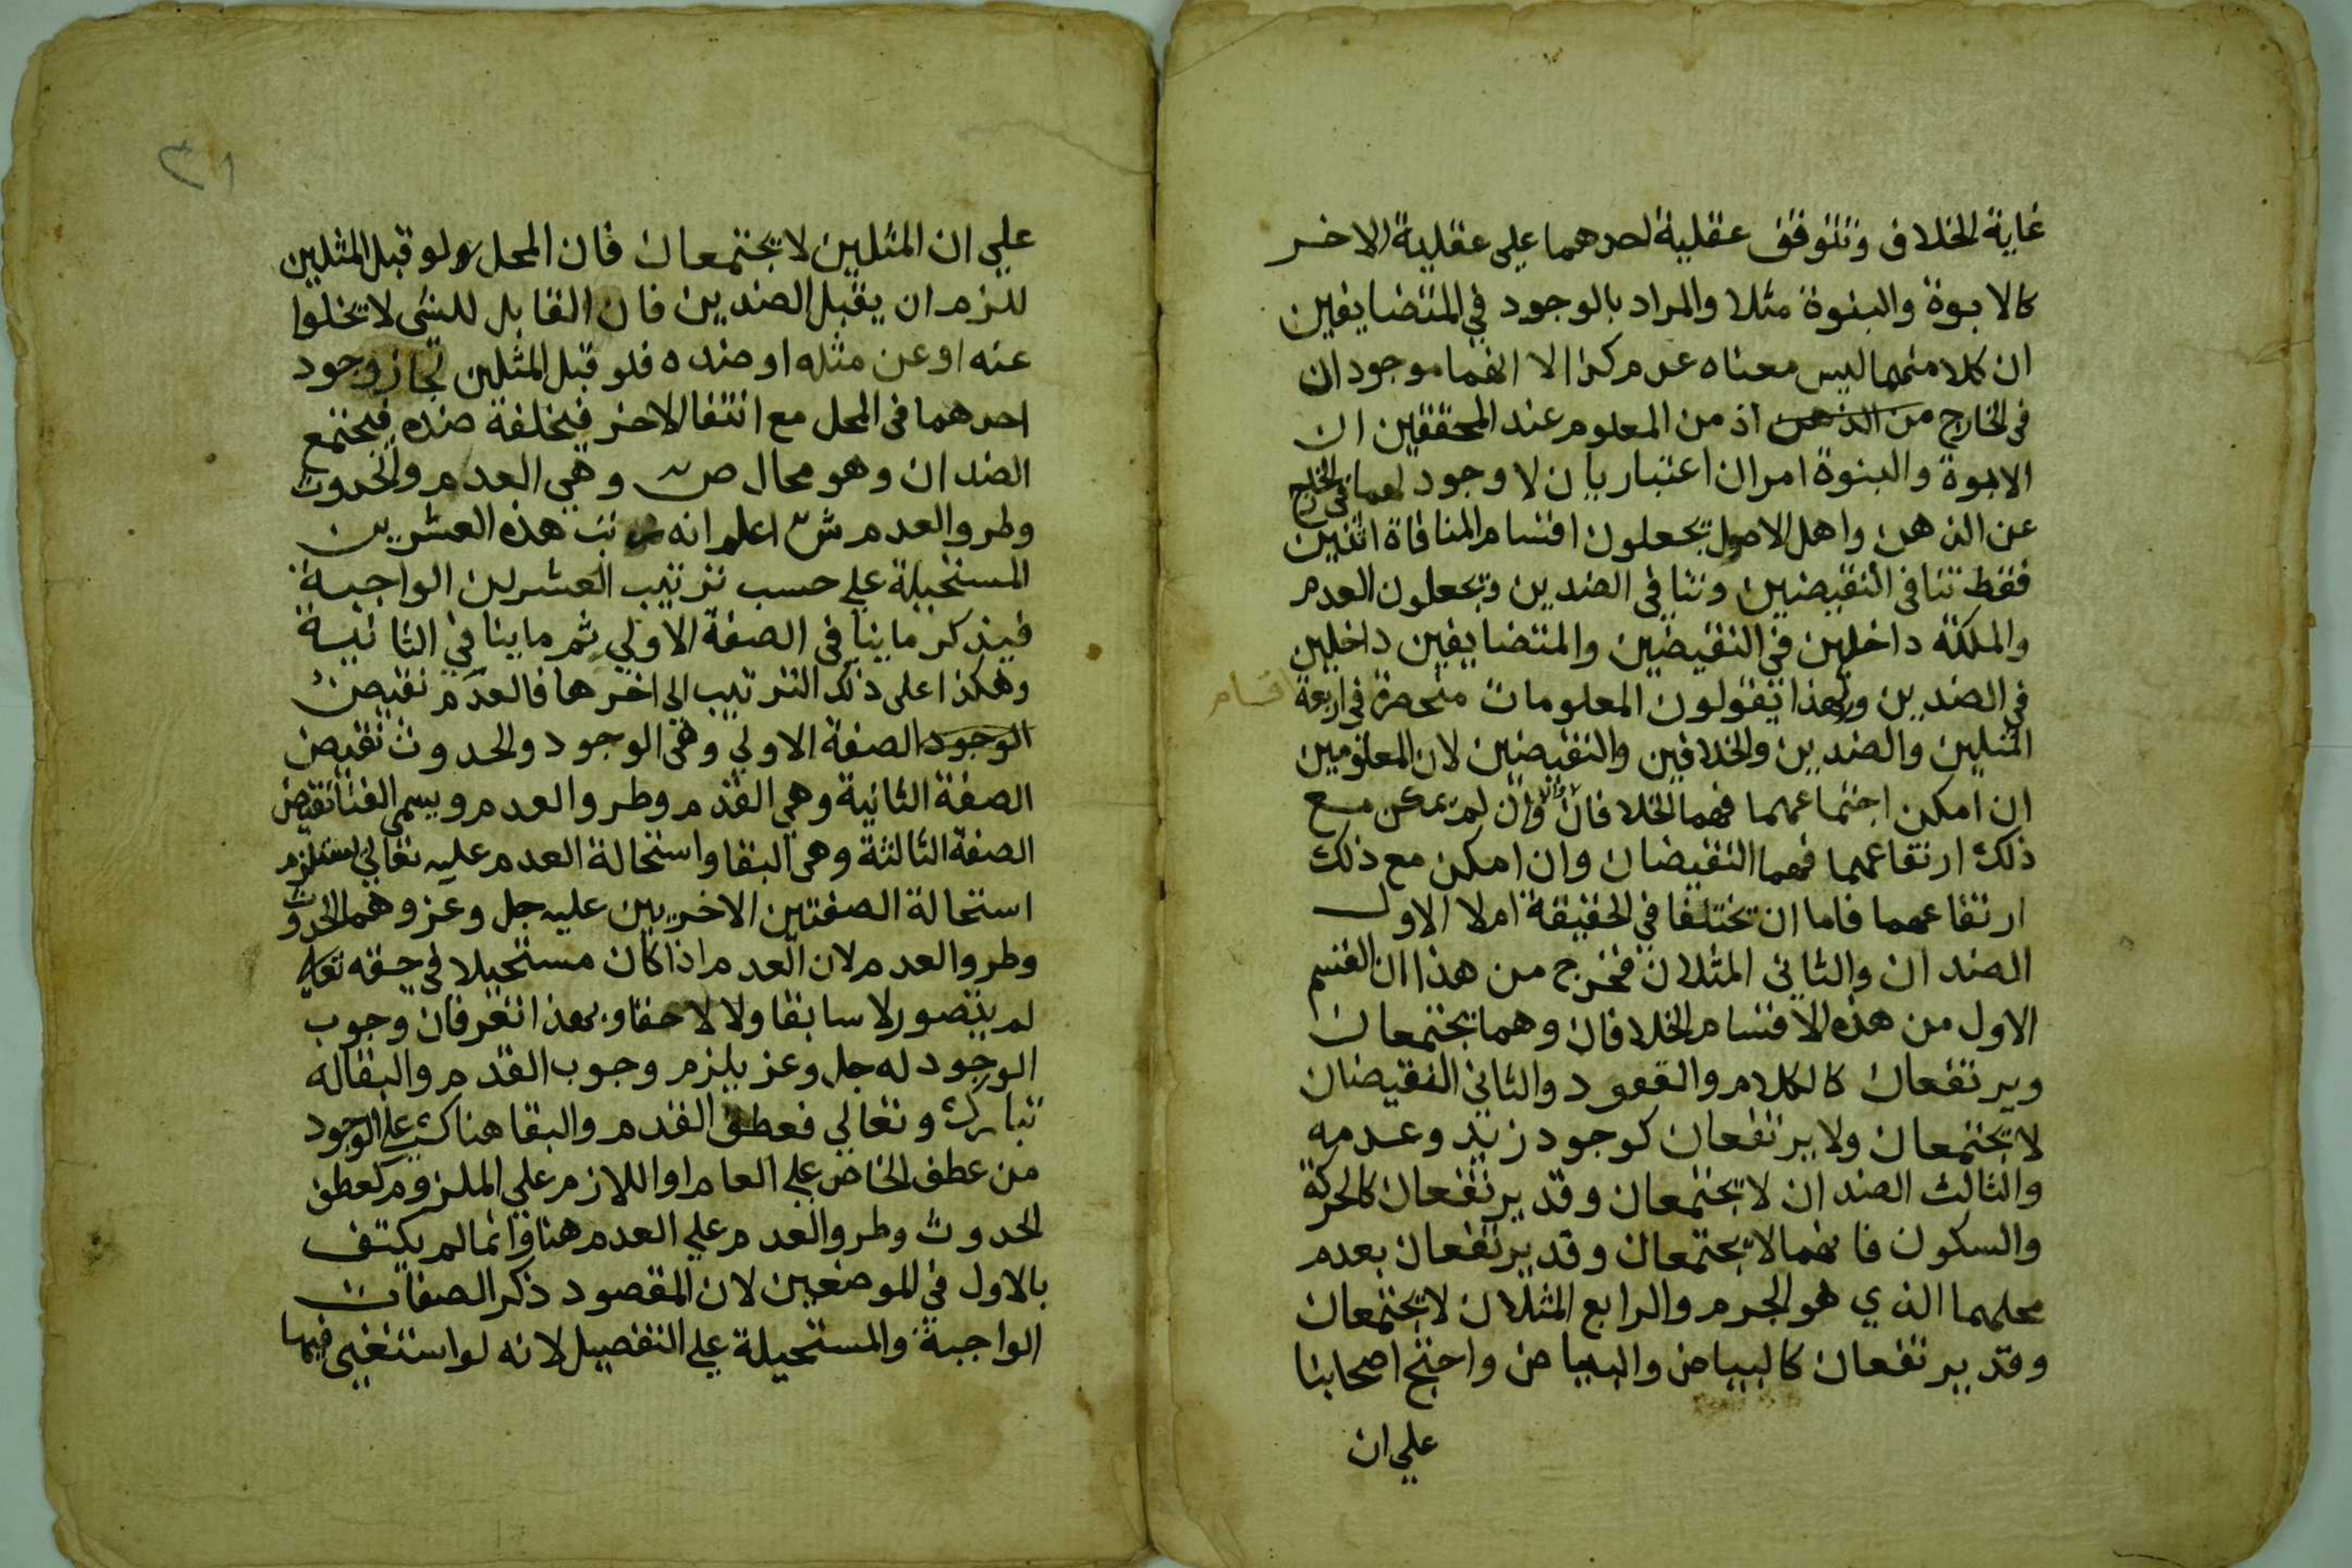 غاية الخلاف وتتوقف عقلية احدهما على عقلية الاخر
كالابوة والبنوة مثلا والمراد بالوجود في المتضايفين
ان كلا منهما ليس معناه عدم كذا لا انهما موجودان
في الخارج من الذهن اذ من المعلوم عند المحققين ان
الابوة والبنوة امران اعتباريان لا وجود لهما في الخارج
عن الذهن واهل الاصول يجعلون اقسام المنافاة اثنين
فقط تنافي النقيضين وتنافي الضدين ويجعلون العدم
والملكة داخلين في النقيضين والمتضايفين داخلين
في الضدين ولهذا يقولون المعلومات منحصرة في اربعة اقسام
المثلين والضدين والخلافين والنقيضين لان المعلومين
ان امكن اجتماعهما فهما الخلافان والا وان لم يمكن مع
ذلك ارتفاعهما فهما النقيضان وان امكن مع ذلك
ارتفاعهما فاما ان يختلفا في الحقيقة ام لا الاول
الضدان والثاني المثلان فخرج من هذا ان القسم
الاول من هذه الاقسام الخلافان وهما يجتمعان
ويرتفعان كالكلام والقعود والثاني النقيضان
لا يجتمعان ولا يرتفعان كوجود زيد وعدمه
والثالث الضدان لا يجتمعان وقد يرتفعان كالحركة
والسكون فانهما لا يجتمعان وقد يرتفعان بعدم
محلهما الذي هو الجرم والرابع المثلان لا يجتمعان
وقد يرتفعان كالبياض والبياض واحتج اصحابنا
علي ان
٣١
علي ان المثلين لا يجتمعان فان المحل ولو قبل المثلين
للزم ان يقبل الضدين فان القابل للشي لا يخلوا
عنه او عن مثله او ضده فلو قبل المثلين لجاز وجود
احدهما في المحل مع انتفا الاخر فيخلفة ضده فيجتمع
الضدان وهو محال ص وهي العدم والحدوث
وطرو العدم ش اعلم انه رتب هذه العشرين
المستحيلة علي حسب ترتيب العشرين الواجبة
فيذكر ما ينافي الصفة الاولي ثم ما ينافي الثانية
وهكذا على ذلك الترتيب الى اخرها فالعدم نقيض
الوجود الصفة الاولي وهي الوجود والحدوث نقيض
الصفة الثانية وهي القدم وطرو العدم ويسمى الفنا نقيض
الصفة الثالثة وهي البقا واستحالة العدم عليه تعالي تستلزم
استحالة الصفتين الاخريين عليه جل وعز وهما الحدوث
وطرو العدم لان العدم اذا كان مستحيلا في حقه تعالي
لم يتصور لا سابقا ولا لاحقا وبهذا تعرف ان وجوب
الوجود له جل وعز يلزم وجوب القدم والبقا له
تبارك وتعالي فعطف القدم والبقا هناك علي الوجود
من عطف الخاص علي العام او اللازم علي الملزوم كعطف
الحدوث وطرو العدم علي العدم هنا وانما لم يكتف
بالاول في الموضعين لان المقصود ذكر الصفات
الواجبة والمستحيلة علي التفصيل لانه لو استغني فيهما